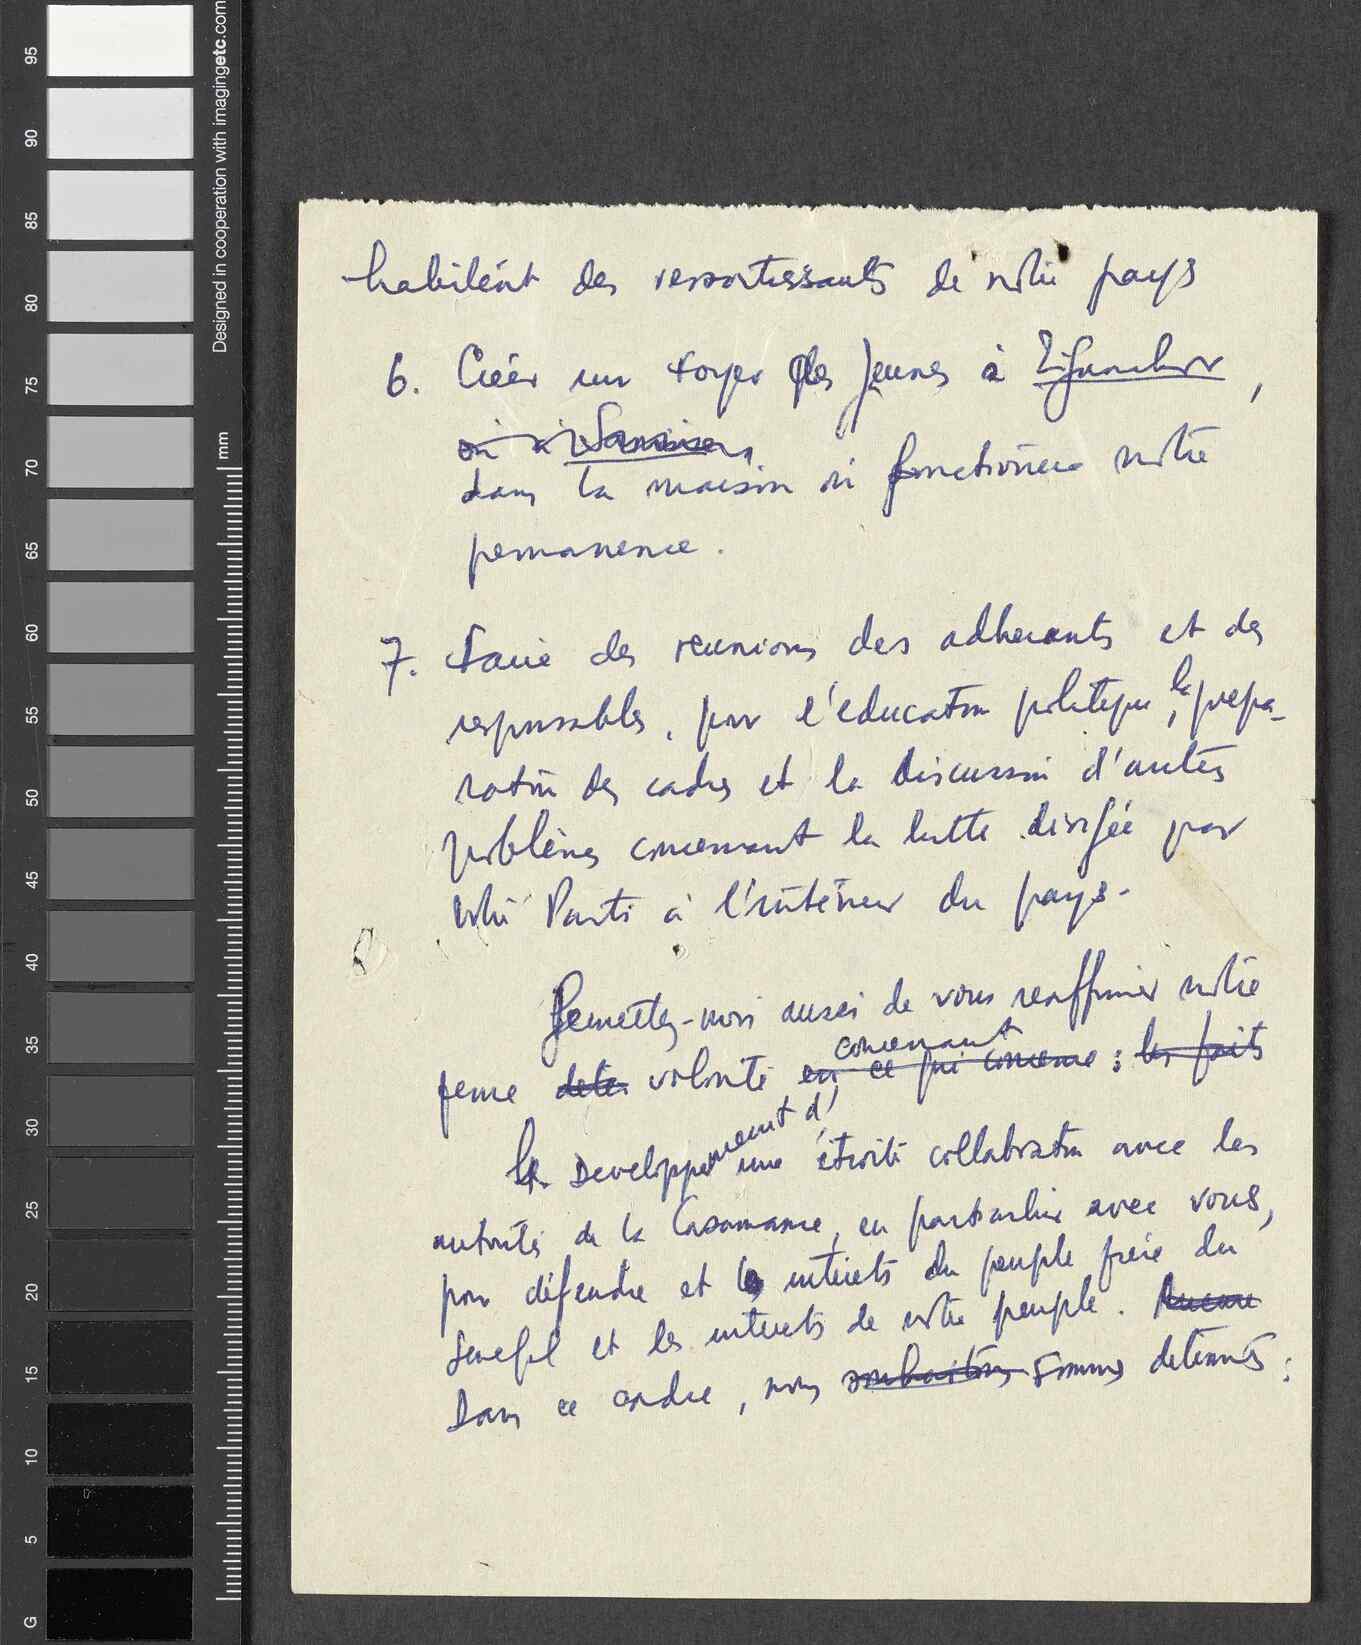 habitent des ressortissants de notre pays
6. Créer un foyer des jeunes à Ziguinchor,
ou à Samine,
dans la maison où fonctionne notre
permanence.
7. Faire des reunions des adherants et des
responsables, pour l'education politique, la prepa-
ration des cadres et la discussion d'autres
problèmes concernant la lutte dirigée par
notre Parti à l'intérieur du pays.
Permettez-moi aussi de vous reaffirmer notre
concernant
ferme deter volonté en ce qui concerne : les faits
le Developpement d'une étroite collaboration avec les
autorités de la Casamance, en particulier avec vous,
pour défendre et les interets du peuple frère du
Senegal et les interets de notre peuple. Aucune
Dans ce cadre, nous souhaitons sommes determinés :
95
90
85
80
75
70
65
60
55
50
45
40
35
30
25
20
15
10
5
G
mm
Designed in cooperation with imagingetc.com